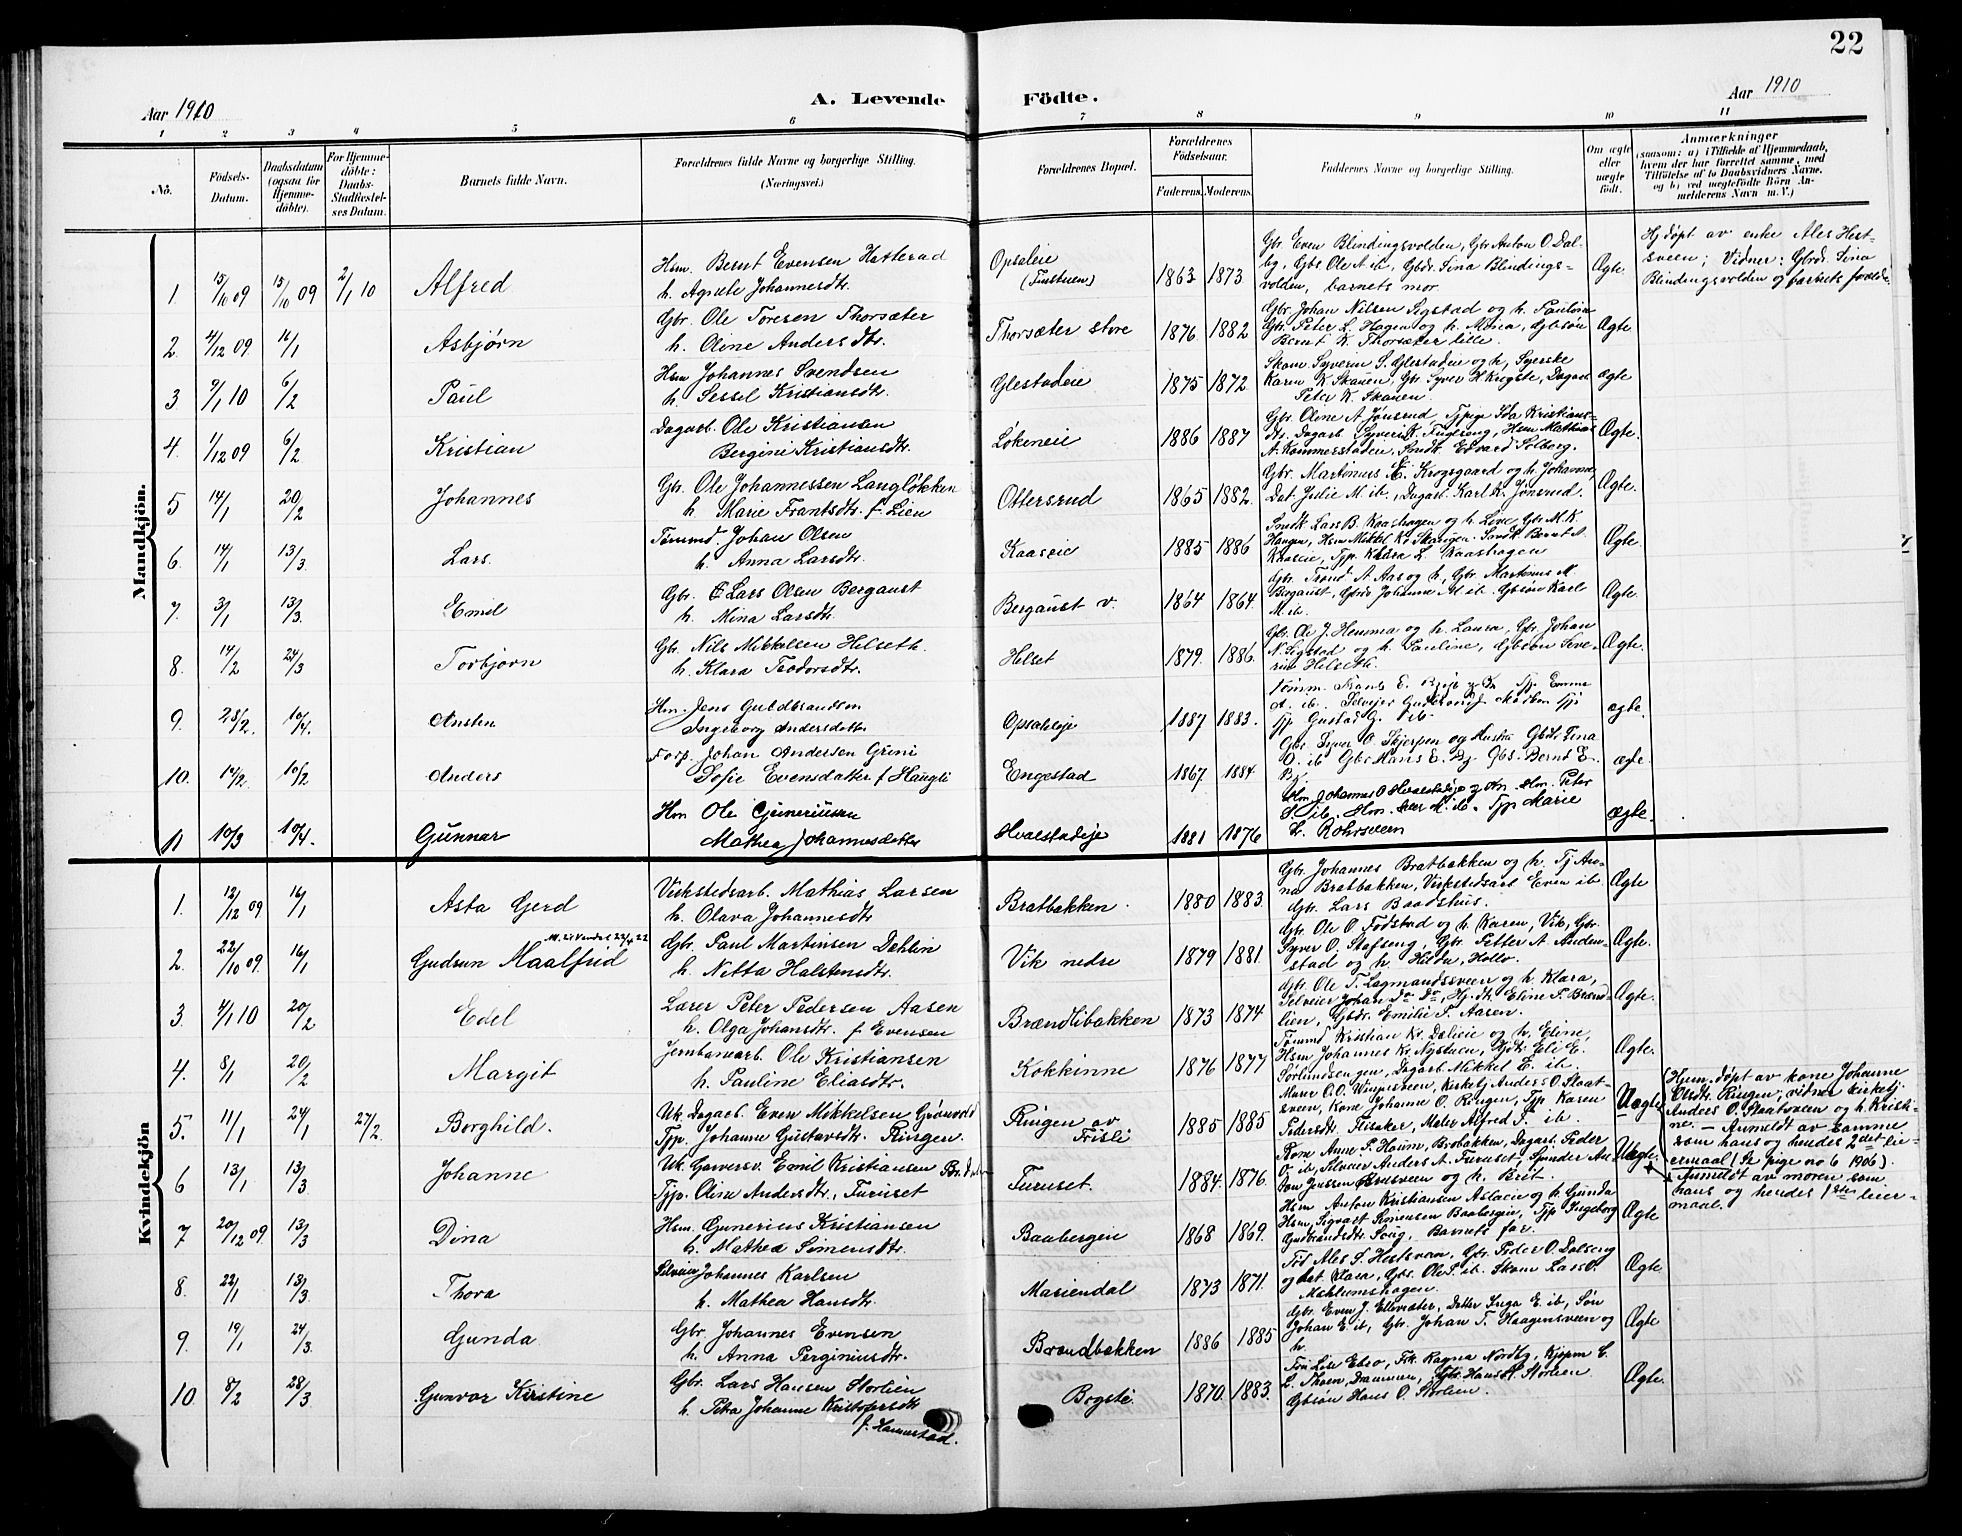 22
Aar 1910
A. Levende Födte.
Aar 1910
1 2 3 4 5 6 7 8 9 10 11
No.
Födsels-Datum.
Daabsdatum (ogsaa for Hjemmedöbte).
For Hjemmedöbte: Daabs-Stadfæstelses Datum.
Barnets fulde Navn.
Forældrenes fulde Navne og borgerlige Stilling. (Næringsvei.)
Forældrenes Bopæl.
Forældrenes Födselsaar.
Faderens. Moderens.
Faddernes Navne og borgerlige Stilling.
Om ægte eller uægte født.
Anmærkninger
(saasom: a) i Tilfælde af Hjemmedaab,
hvem der har forrettet samme, med
Tilföielse af to Daabsvidners Navne.
og b) ved uægtefödte Börn An-
melderens Navn m. V.)
Mandkjön.
1 15/10 09 15/10 09 2/1 10 Alfred
Hsm. Bernt Evensen Hatterud
h. Agnete Johannesdtr.
Opsaleie 1863 1873
Gbr. Even Blindingsvolden, Gbr Anton O. Dal-
by, Gbs Ole A. ib, Gbdr. Lina Blindings-
volden, barnets mor.
Ægte.
Hj.døpt av enke Ales Hest-
sveen; Vidner: Gbrd. Lina
Blindingsvolden og barnets foreldre
2. 4/12 09. 16/1 Asbjørn
Gbr. Ole Toresen Thorsæter
h. Oline Andersdtr.
Thorsæter store 1876 1882
Gbr. Johan Nilsen Sigstad og h. Pauline
Gbr. Peter L. Hagen og h. Mina, Gbsøn
Bernt K. Thorsæter lille.
Ægte
3. 9/1 10 6/2 Paul
Hsm Johannes Svendsen
h. Sessel Kristiansdtr.
Glestadeie 1875 1872
Skom Syverin S. Glestadeie og h, Syerske
Karen K. Skauen, Gbr Syver H Krigste, Dagarb
Peter K. Skauen.
ægte
4. 1/12 09 6/2 Kristian
Dagarb. Ole Kristiansen
Bergine Kristiansdtr.
Løkeneie 1886 1887
Gbr. Oline A. Jønsrud Tjpige Ida Kristians-
dtr. Dagarb. Syver K. Fugleseng, Hsm Mathias
A. Kammerstaden, Smdk. Edvard Solberg.
Ægte.
5 14/1 20/2 Johannes
Gbr. Ole Johannessen Langløkken
h. Marie Frantsdtr. f. Lien
Ottersrud 1865 1882
Gbr. Martinius E. Krogsgaard og h. Johanne,
Dat. Julie M. ib., Dagarb. Karl K. Jønsrud.
Ægte.
6. 14/1 13/3 Lars.
Tømmd. Johan Olsen
h. Anna Larsdtr.
Kaaseie 1885 1886
Smdk. Lars B. Kaashagen og h. Line Gbr M. K.
Haugen, Hsm Mikkel Kr. Skaugen. Smdk. Bernt A.
Kaaseie, Tjp. Klara L. Kaashagen
Ægte.
7. 3/1 13/3. Emil
Gbr. Lars Olsen Bergaust
h. Mina Larsdtr.
Bergaust v. 1864 1864.
Gbr. Trond A. Aas og h, Gbr. Martinus M
Bergaust, Gbrd Johanne M. ib. Gbsøn Karl
M. ib.
Ægte.
8. 14/2 24/3 Torbjørn
Gbr. Nils Mikkelsen Helseth.
h. Klara Teodorsdtr.
Helset 1879. 1886.
Gbr. Ole J. Hemma og h. Laura, Gbr. Johan
N. Sigstad og h. Pauline, Gbsøn Seve-
rin Helseth.
Ægte.
9. 28/2. 10/4. Austen
Hm. Jens Guldbrandsen
Ingeborg Andersdatter
Opsaleje 1887 1883.
ægte.
10. 14/2. 10/2 Anders
Forp. Johan Andersen Grini
Sofie Evensdatter f Haugli
Engestad 1867 1884.
Gbr. Syver O. Skjerpen og Hustru Gbdtr Lina
O. ib Gbr Hans E. By. Gbs. Bernt E.
By.
ægte.
11 10/3 10/4. Gunnar
Hm Ole Guneriussen
Mathea Johannesdatter
Hvalstadeje 1881 1876
Hm. Johannes O Hvalstadeje og Kn. Hm. Peter
S. ib. Hm. Iver M. ib. Tjp Marie
L. Rohrsveen
Ægte.
Kvindekjön
1. 12/12 09 16/1 Asta Gerd
Virkstedsarb. Mathias Larsen
h. Olava Johannesdtr
Bratbakken. 1880 1883.
Gbr. Johannes Bratbakken og h. Tj Ano-
na Bratbakken, Virkstedsarb Even ib.
Gbr. Lars Baadshus.
Ægte
2. 22/10 09. 16/1 Gudrun Maalfrid
Gbr. Paul Martinsen Dehlin
h. Netta Halstensdtr.
Vik nedre 1879 1881.
Gbr. Ole O. Fodstad og h. Karen, Vik, Gbr.
Syver O. Stafseng, Gbr. Petter A Anden-
stad og h. Hilda, Hollo.
Ægte.
3. 4/1 10 20/2 Edel
Lærer Peter Pedersen Aasen
h. Olga Johansdtr. f. Evensen
Brændlibakken 1873 1874
Gbr. Ole T. Lagmandssveen og h. Klara,
Selveier Johan Do Do, Hj. dtr. Eline P. Brænd-
lien, Gbdr. Emilie P. Aasen.
Ægte.
4. 8/1 20/2 Margit
Jernbanearb. Ole Kristiansen
h. Pauline Eliasdtr.
Kokkinne 1876 1877
Tømmd Kristian Kr. Dælieie og h. Eline,
Hsm Johannes Kr. Nystuen, Hjdtr. Eli E.
Sørlundsengen, Dagarb Mikkel E. ib.
Ægte.
5. 11/1 24/1 27/2. Borghild.
Uk. Dagarb. Even Mikkelsen Grønvold
Tjp. Johanne Gustavsdtr. Ringen.
Ringen av Frisli 1885 1885
Murer O.O. Vinpersveen, Kirketj Anders O. Staat-
sveen, Kone Johanne O. Ringen, Tjp Karen
Pedersdtr. Flisaker, Maler Alfred F. ib.
Uægte
Hjem.døpt av kone Johanne
Olsdtr. Ringen; vidner kirketj.
Anders O. Staatsveen og h. Kristi-
ne. — Anmeldt av samme
som hans og hendes 2det lei-
ermaal (se pige no 6 1906).
6 13/1 13/3 Johanne
Uk. Garversv. Emil Kristiansen
Tjp. Oline Andersdtr., Furuset
Furuset. 1884. 1876.
Kone Anne P. Haum, Brobakken, Dagarb. Peder
O. ib, Selveier Anders A. Furuset, Spinder An-
ton Jenssen Brusveen og h. Berit.
Uægte.
Anmeldt av moren som
hans og hendes 1ste leier-
maal.
7 20/12 09. 13/3 Dina
Hsm. Gunerius Kristiansen
h. Mathea Simensdtr.
Baabergeie 1868 1869.
Hsm Anton Kristiansen Aslaeie og h. Gunda
Hsm. Sigvart Simensen Baabergeie, Tjp Ingeborg
Gudbrandsdtr Soug, Barnets far.
Ægte
8. 22/1 13/3 Thora
Selveier Johannes Karlsen
h. Mathea Hansdtr.
Mariendal 1873 1871.
Frk Ales S. Hestsveen, Gbr. Peder O. Dalseng
og dat. Klara, Gbs. Ole P. ib. Skom Lars O.
Mæhlumshagen.
Ægte.
9. 19/1 24/3. Gunda
Gbr. Johannes Evensen
h. Anna Perginiusdtr.
Brændbakken 1886 1885
Gbr. Even J. Ellevsæter, Datter Inga E. ib, Søn
Johan E. ib, Gbr. Johan T. Haagensveen og
h.
Ægte
10 8/2 28/3 Gunvor Kirstine
Gbr. Lars Hansen Storlien
h. Petra Johanne Kristofersdtr
f. Hammerstad.
Bogsti. 1870. 1883.
Fru Lise Ebso, Frk. Ragna Nordby, Kjøpm. C.
L. Thoen, Drammen, Gbr. Hans O. Storlien
Gbsøn Hans O. Storlien.
Ægte.